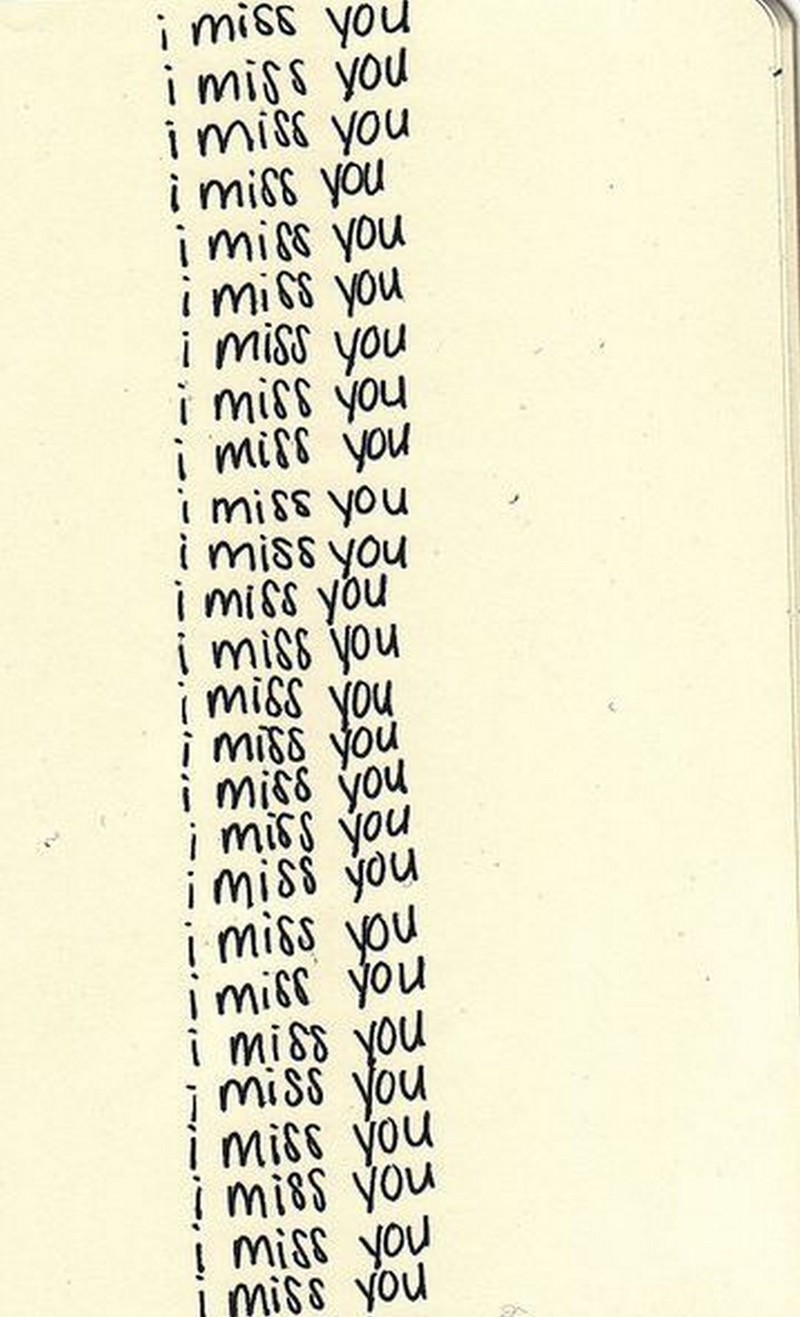 i miss you
i miss you
i miss you
i miss you
i miss you
i miss you
i miss you
i miss you
i miss you
i miss you
i miss you
i miss you
i miss you
i miss you
i miss you
i miss you
i miss you
i miss you
i miss you
i miss you
i miss you
i miss you
i miss you
i miss you
i miss you
i miss you